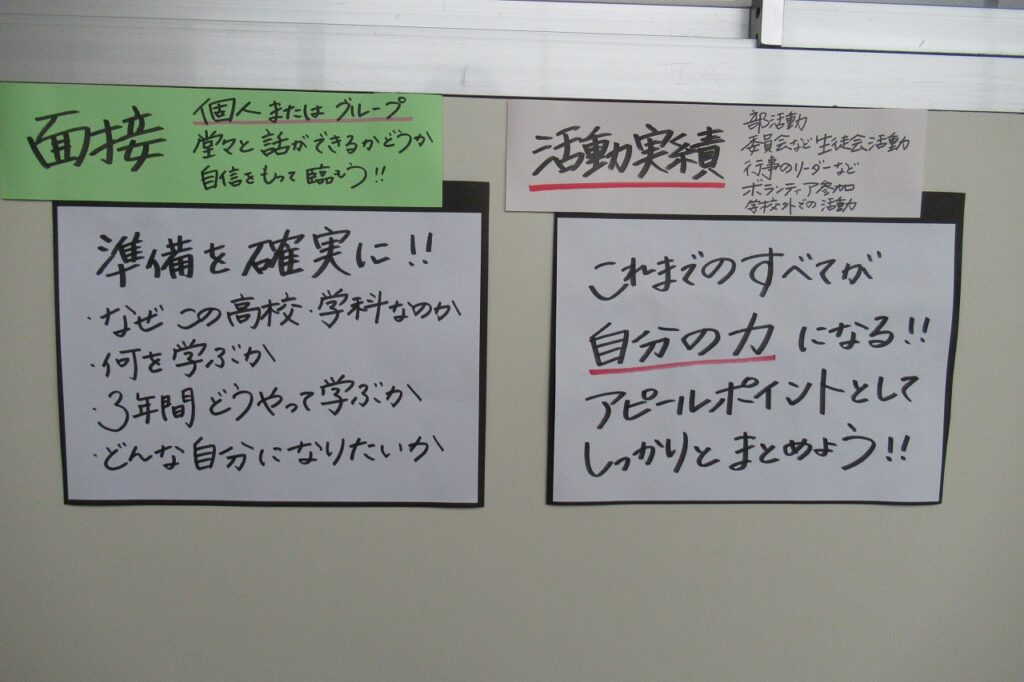 面接
個人またはグループ
堂々と話ができるかどうか
自信をもって臨もう!!
準備を確実に!!
・なぜこの高校・学科なのか
・何を学ぶか
・3年間どうやって学ぶか
・どんな自分になりたいか
活動実績
部活動
委員会など生徒会活動
行事のリーダーなど
ボランティア参加
学校外での活動
これまでのすべてが
自分の力になる!!
アピールポイントとして
しっかりとまとめよう!!